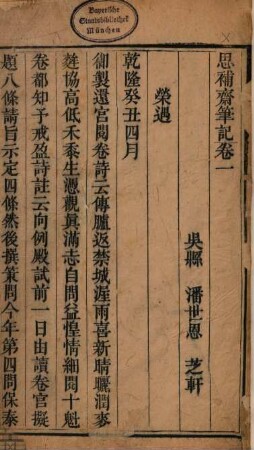 Bayerische
Staatsbibliothek
München
思補齋筆記卷一
吳縣 潘世恩 芝軒
榮遇
乾隆癸丑四月
御製還宮閱卷詩云傳臚返禁城渥雨喜新晴隴潤麥
協高低禾黍生憑觀眞滿志自問益惶情細閱十魁
卷都知予戒盈詩註云向例殿試前一日由讀卷官擬
題八條請旨示定四條然後撰策問今年第四問保泰